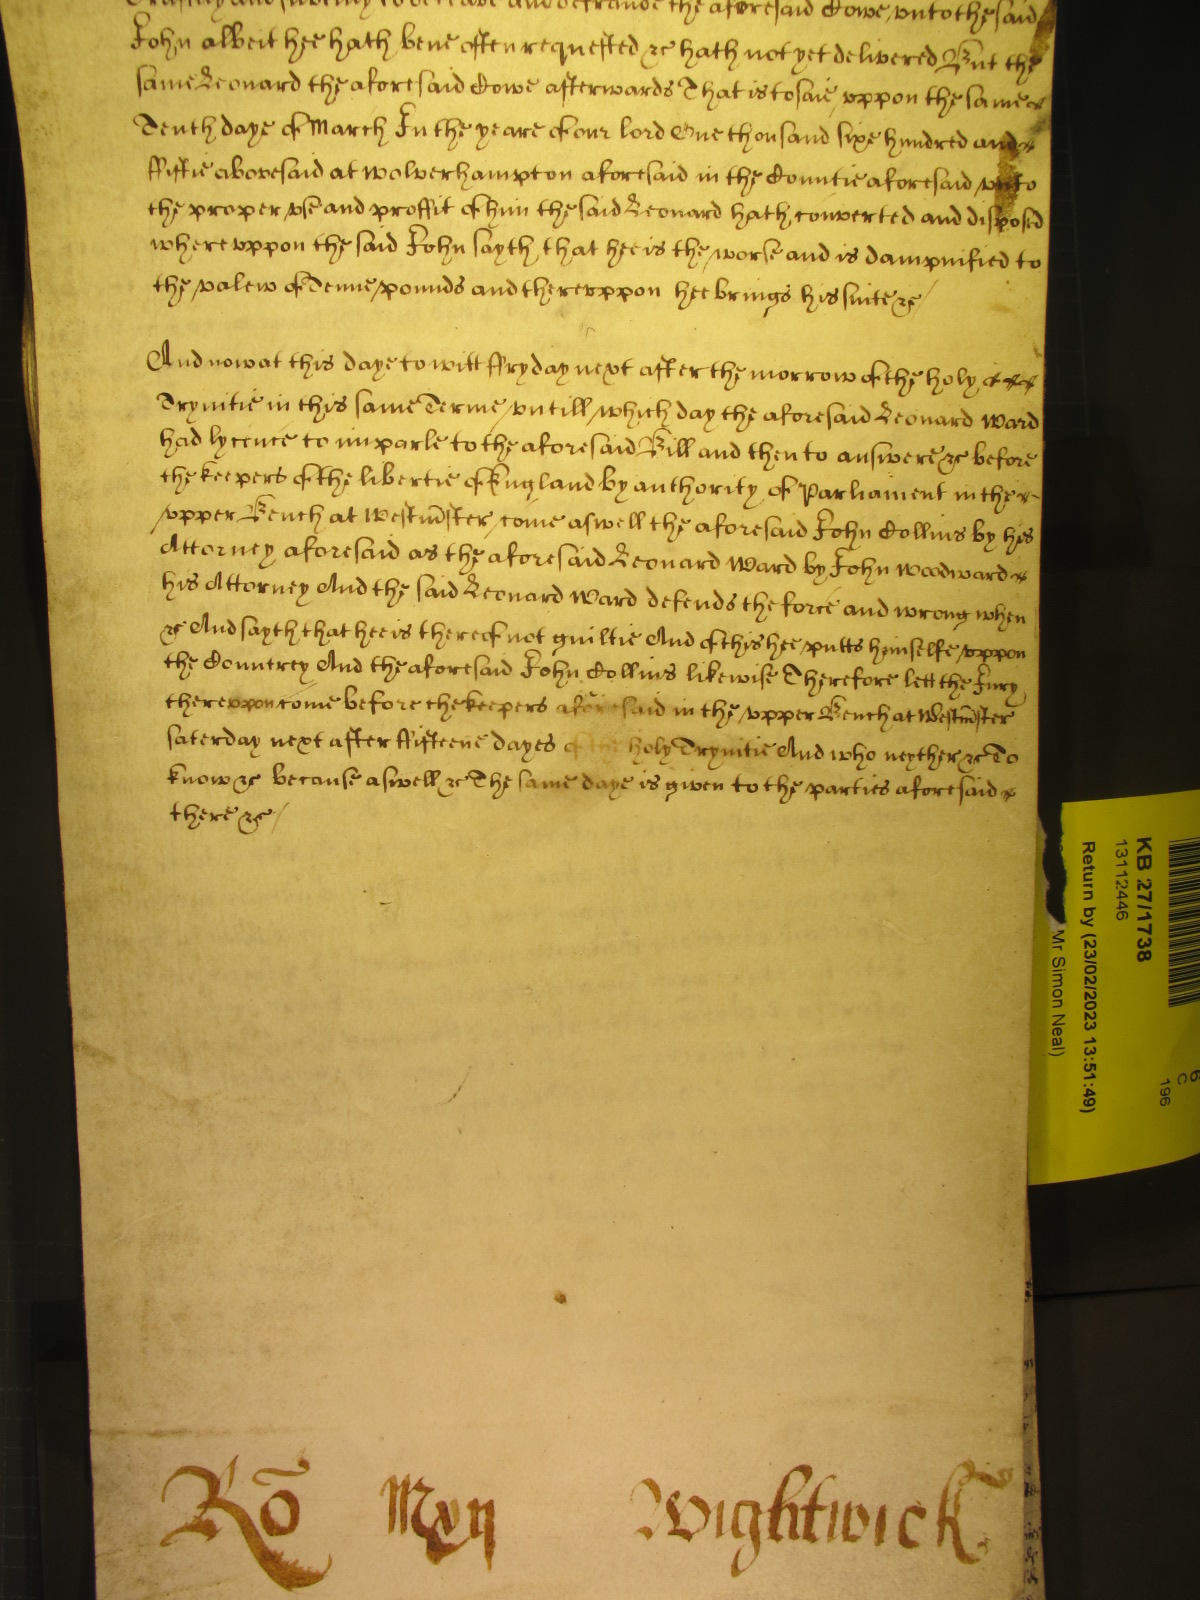 Craftily and subtilly to deceave and defraude the aforesaid Cowe, vnto the said
John albeit hee hath bene often requested &c hath not yet delivered But the
same Leonard the aforesaid Cowe afterwards That is to saie, vppon the same
Tenth daye of March In the yeare of our lord One thousand sixe hundred and
ffiftie abovesaid at wolverhampton aforesaid in the Countie aforesaid vnto
the proper vse and proffit of him the said Leonard hath converted and disposed
wherevppon the said John sayth that hee is the worse and is dampnified to
the valew of Tenne pounds and therevppon hee brings his suite &c
And now at this daye to witt ffryday next after the morrow of the holy
Trynitie in this same Terme, vntill which day the aforesaid Leonard Ward
had lycence to imparle to the aforesaid Bill and then to answere &c before
the keepers of the libertie of England by authority of Parliament in the
vpper Bench at Westmster come aswell the aforesaid John Collins by his
Attorney aforesaid as the aforesaid Leonard Ward by John Woodward
his Attorney And the said Leonard Ward defends the force and wrong when
&c And sayth that hee is thereof not guiltie And of this hee putts himselfe vppon
the Countrey And the aforesaid John Collins likewise Therefore lett the Jury
therevppon come before the keepers aforesaid in the vpper Bench at Westmster
saterday next after ffifteene dayes of the holy Trynitie And who neyther &c To
know &c because aswell &c The same daye is given to the parties aforesaid
there &c
Ro Wightwick
KB 27/1738
13112446
Return by (23/02/2023 13:51:49)
Mr Simon Neal)
6
C
196